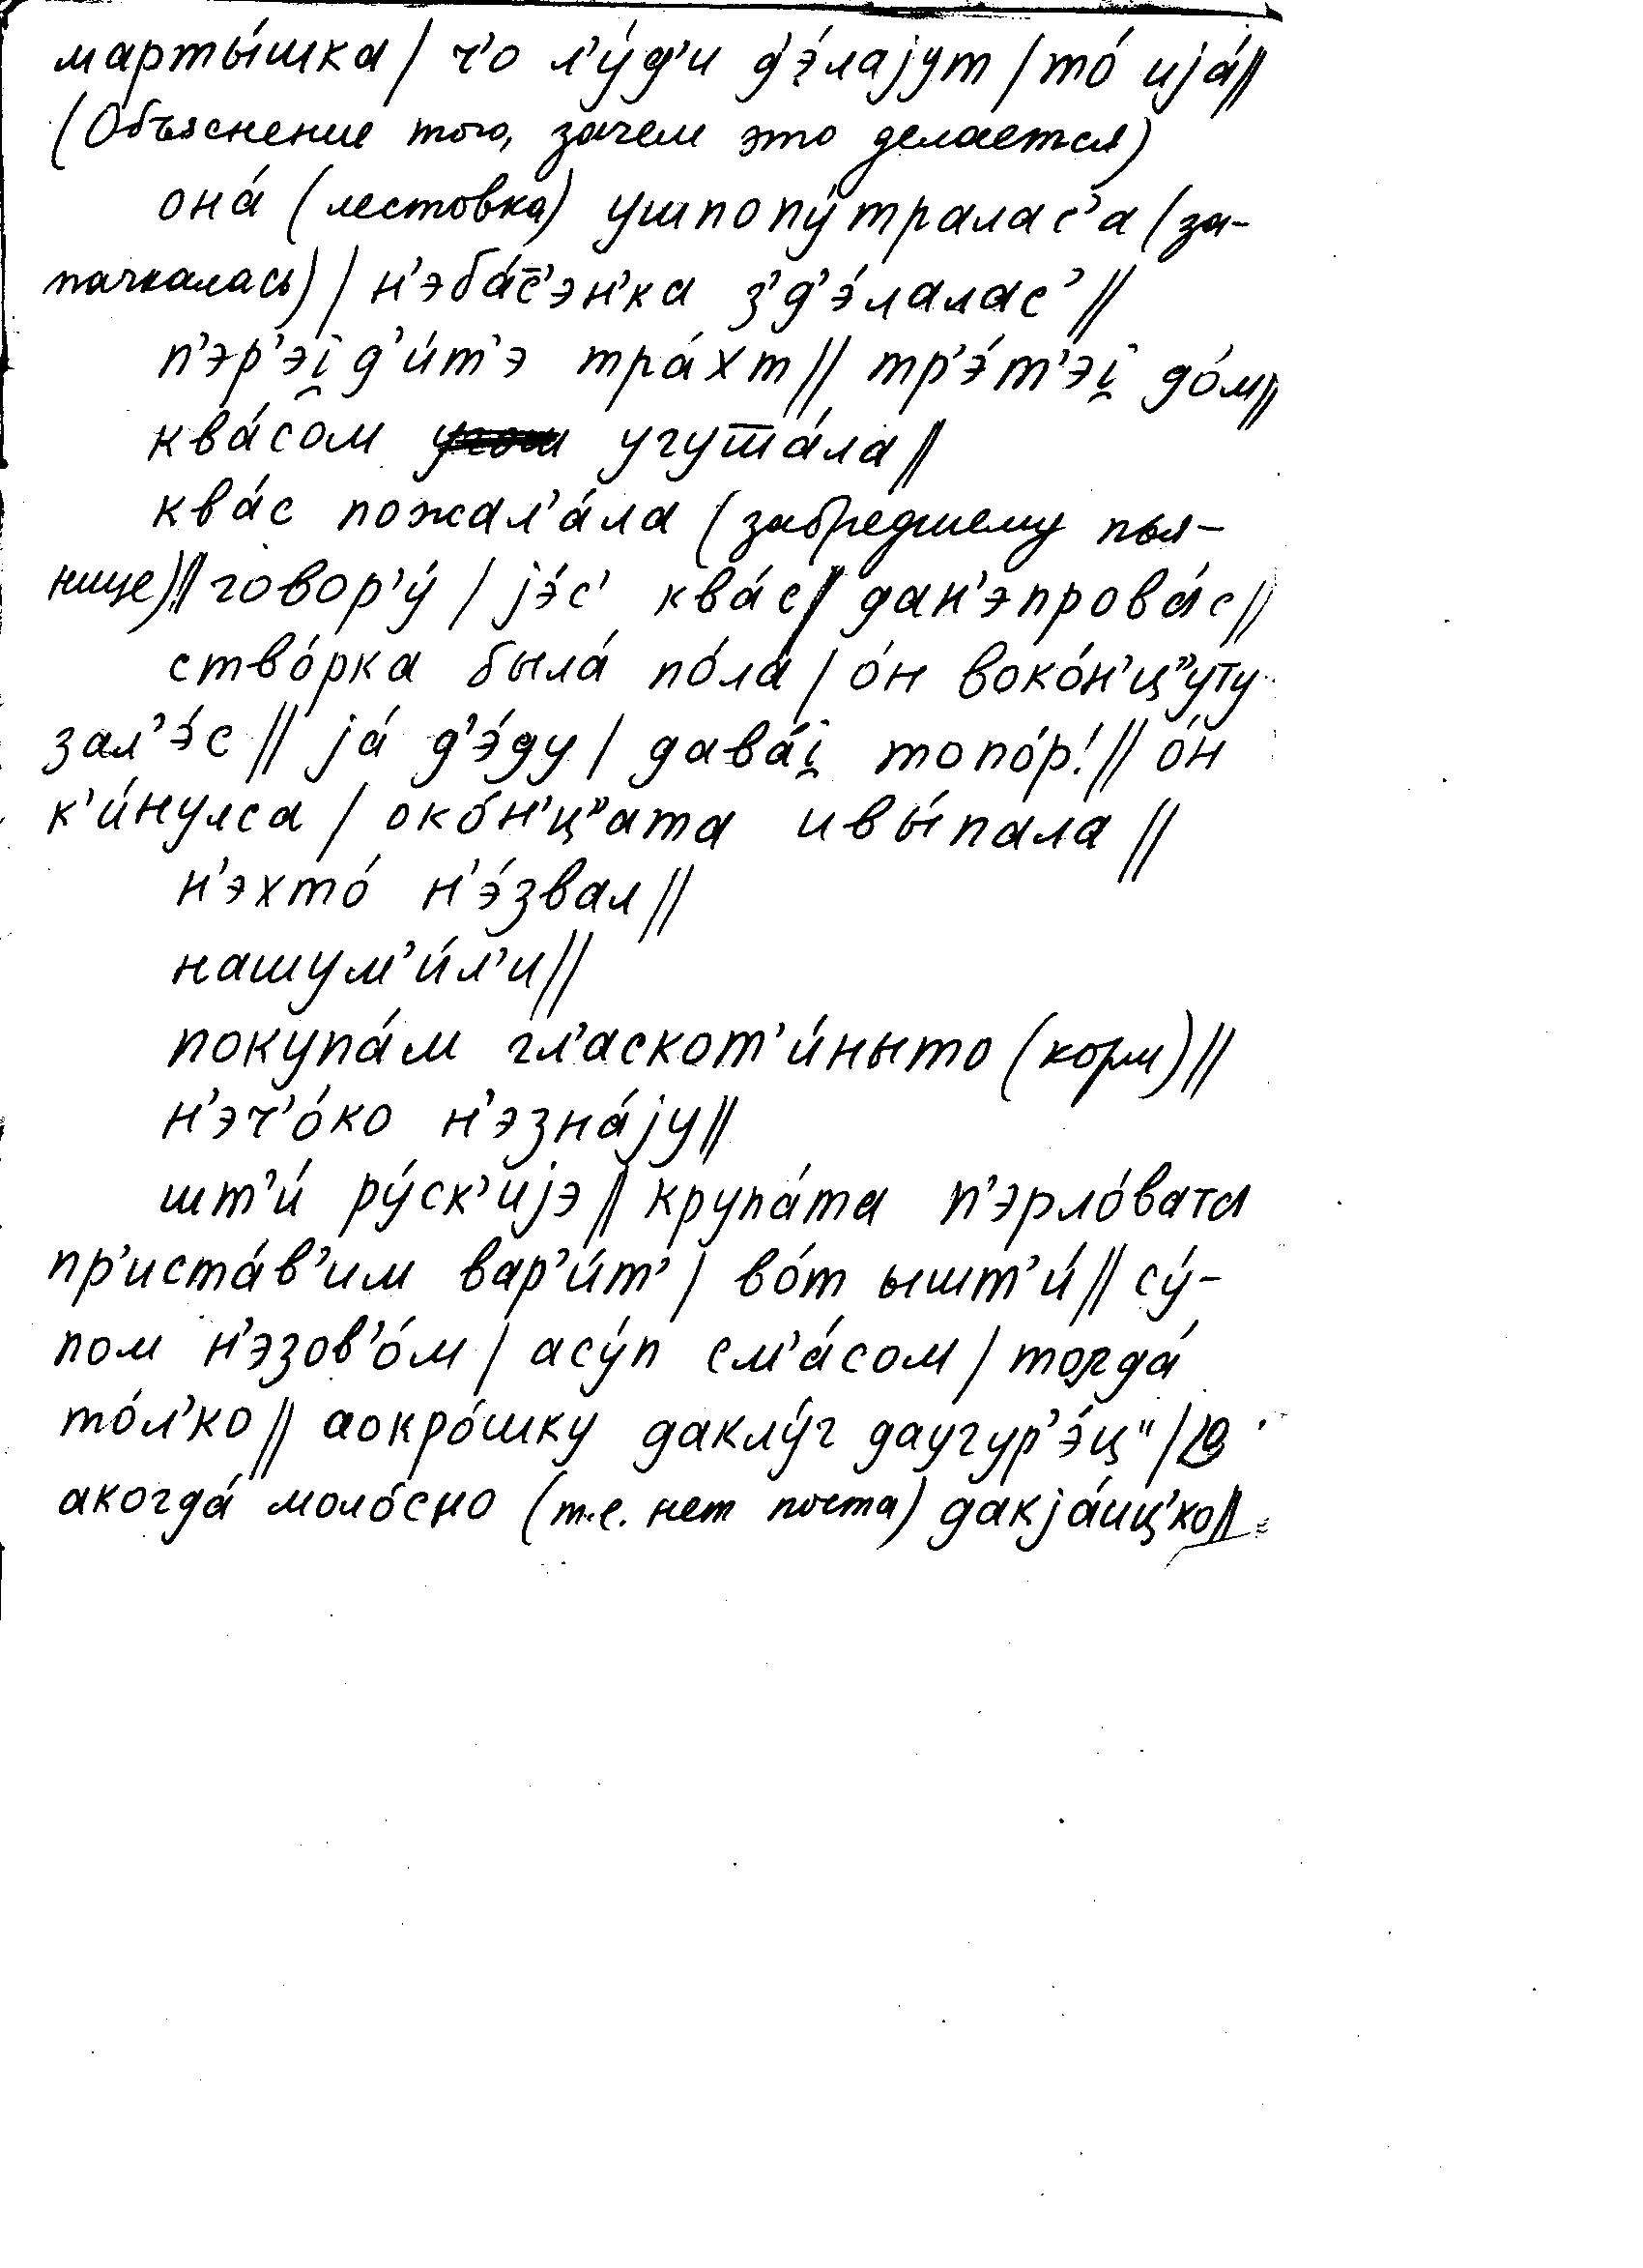 марты́шка / ч'о л'у́д'и д'э́лаjут / то́ иjа́ //
(Объяснение того, зачем это делается)
она́ (лестовка) ушпопу́тралас'а (за-
пачкалась) / н'эба́с̄'эн'ка з'д'э́лалас' //
п'эр'эi̯д'и́т'э тра́хт // тр'э́т'эi̯ до́м //
ква́сом угуш̄а́ла //
ква́с пожал'а́ла (забредшему пья-
нице) // говор'у́ / jэ́с' ква́с // дан'эпрова́с //
ство́рка была́ по́ла / о́н воко́н'ц"уту
зал'э́с // jа́ д'э́ду / дава́i̯ топо́р! // о́н
к'и́нулса / око́н'ц"ата ивы́пала //
н'эхто́ н'э́звал //
нашум'и́л'и //
покупа́м гл'аскот'и́ныто (корм) //
н'эч'о́ко н'эзна́jу //
шт'и́ ру́ск'иjэ // крупа́та п'эрло́вата
пр'иста́в'им вар'и́т' / во́т ышт'и́ // су́-
пом н'эзов'о́м / асу́п см'а́сом / тогда́
то́л'ко // аокро́шку даклу́ч даугур'э́ц" /
акогда́ моло́сно (т.е. нет поста) дакjа́иц'ко //